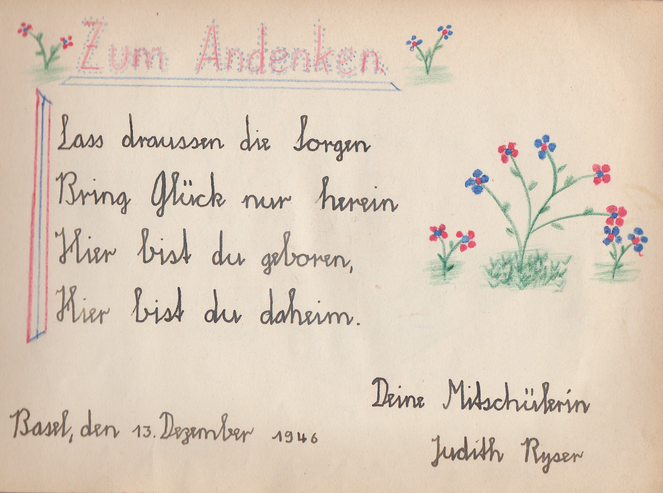 Zum Andenken
Lass draussen die Sorgen
Bring Glück nur herein
Hier bist du geboren,
Hier bist du daheim.
Deine Mitschülerin
Basel, den 13. Dezember 1946
Judith Ryser